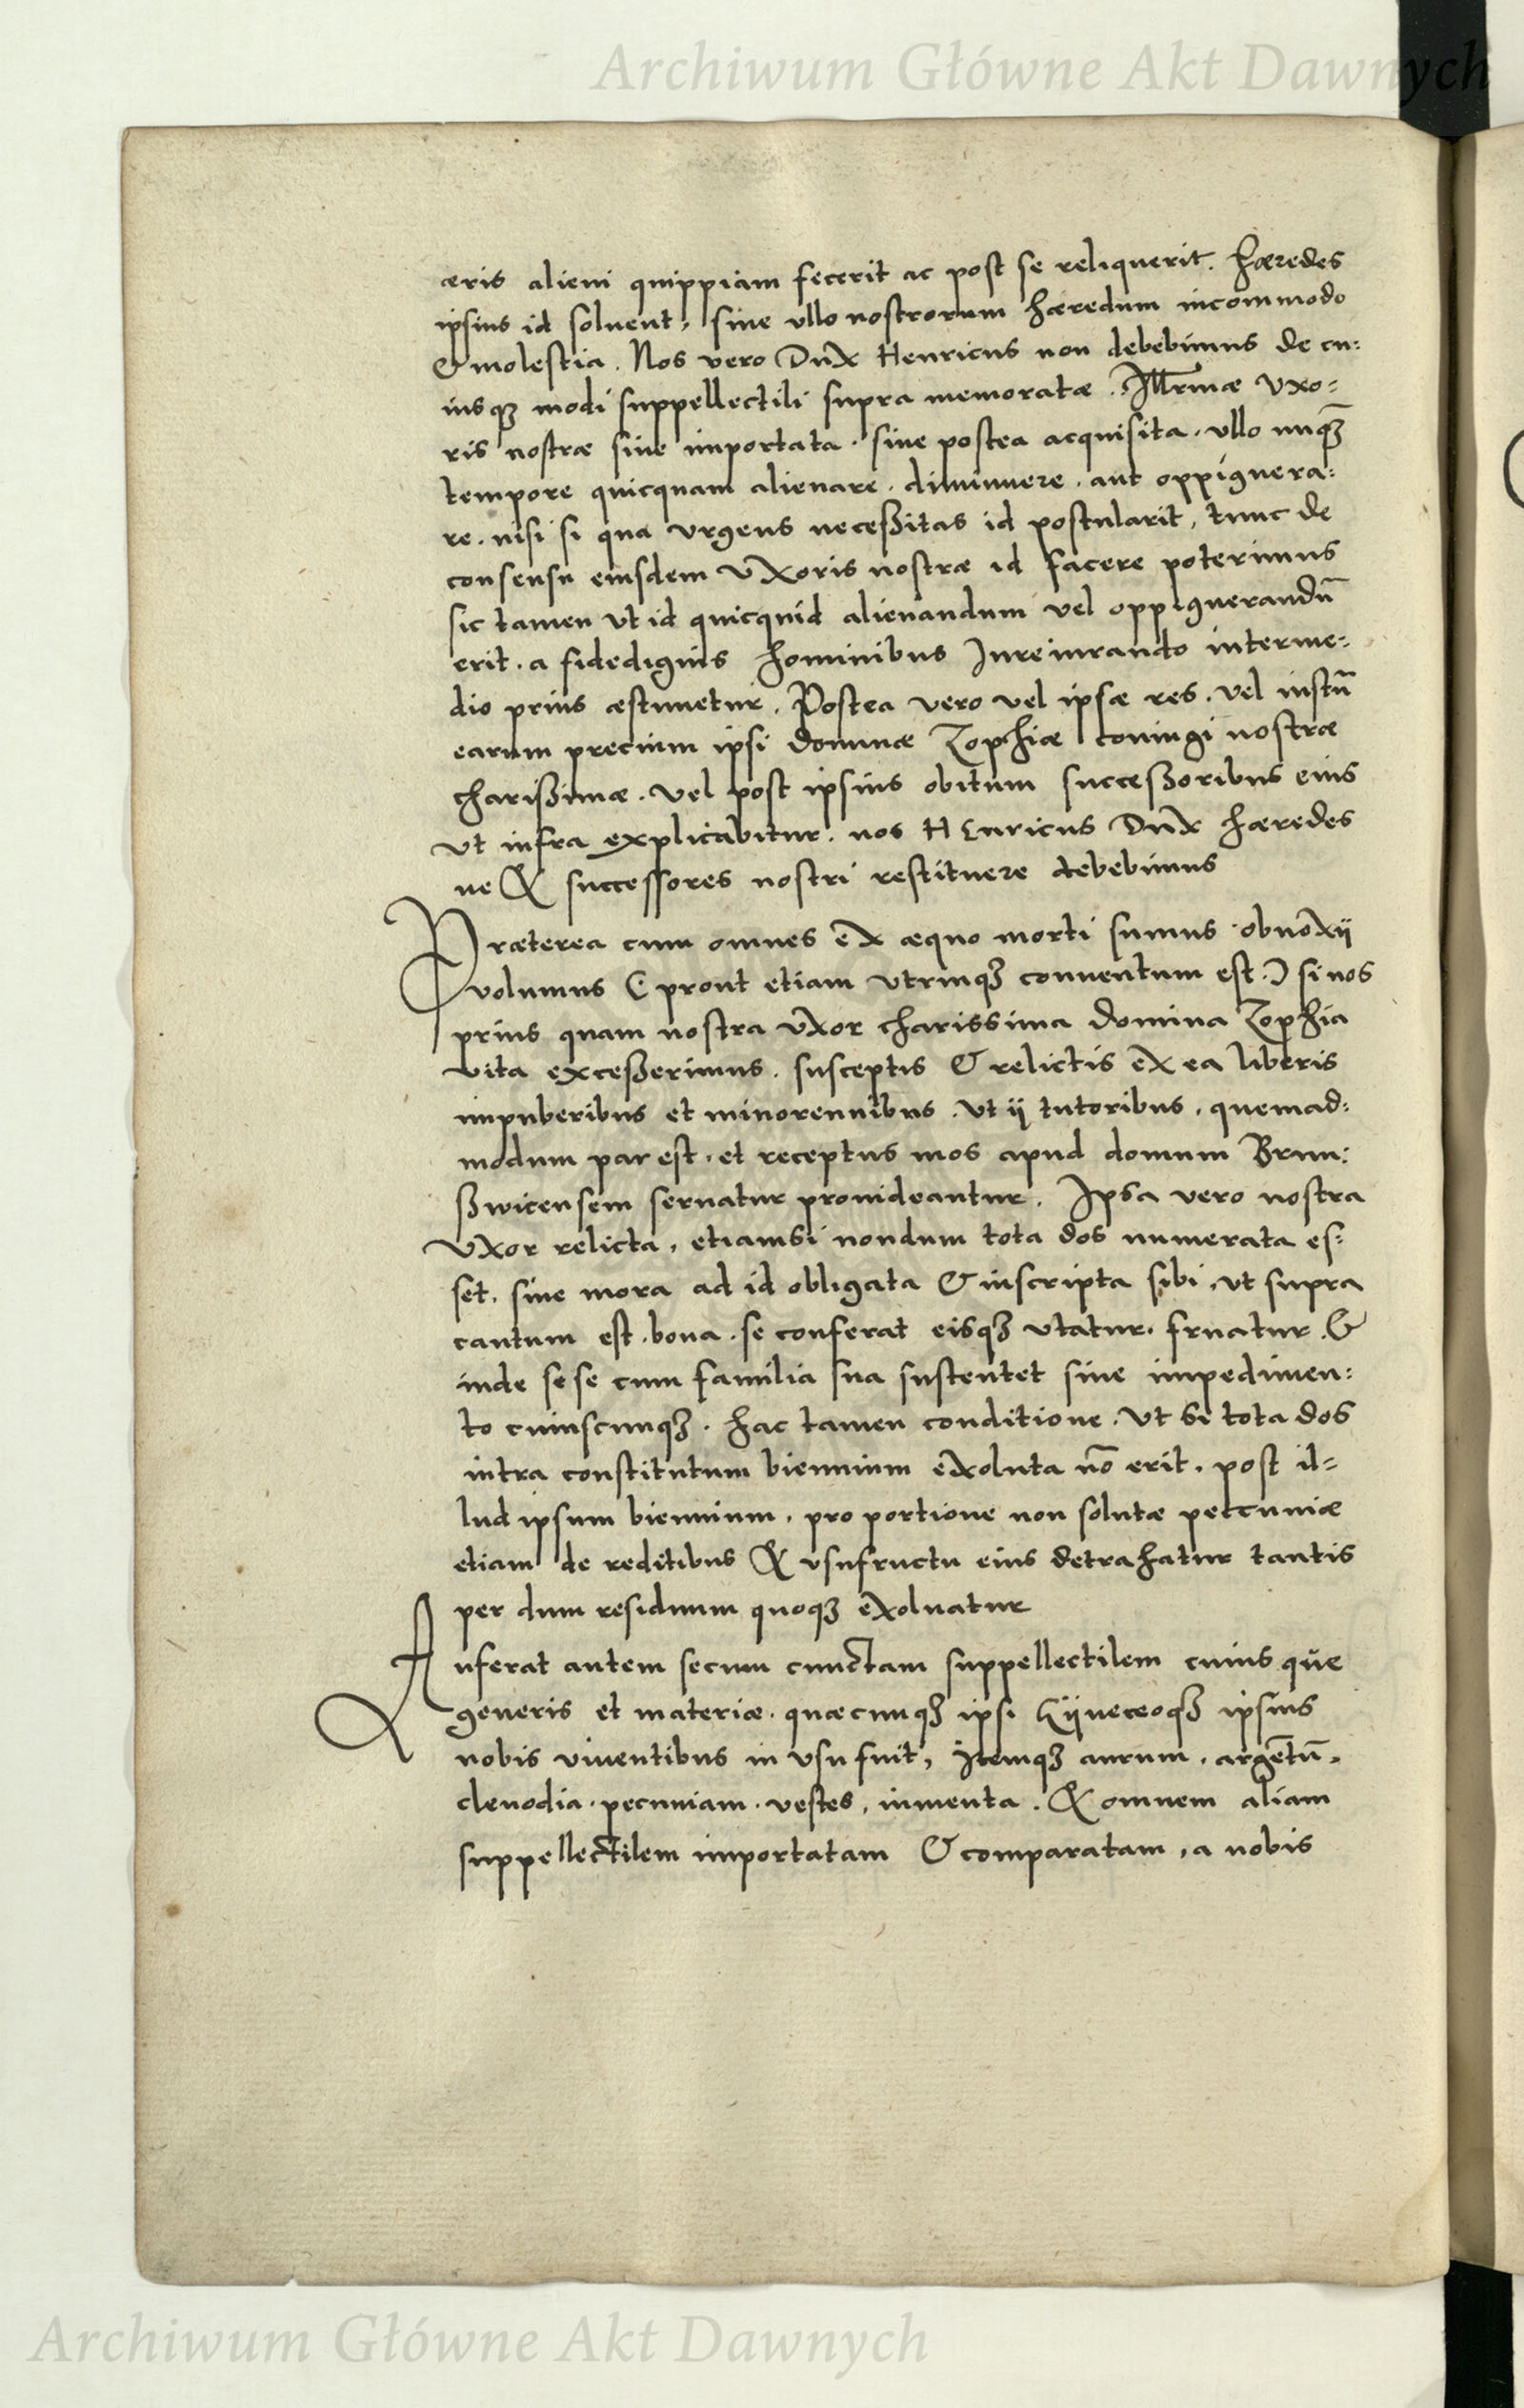 Archiwum Główne Akt Dawnych
æris alieni quippiam fecerit ac post se reliquerit. hæredes
ipsius id soluent, sine ullo nostrorum hæredum incommodo
& molestia. Nos vero Dux Henricus non debebimus de cu:
iusqȝ modi suppellectili supra memoratæ. Illrmæ Uxo:
ris nostræ siue importata. siue postea acquisita. ullo unqȝ̄
tempore quicquam alienare. diminuere. aut oppignera:
re. nisi si qua urgens neceßitas id postularit, tunc de
consensu eiusdem Uxoris nostræ id facere poterimus
sic tamen ut id quicquid alienandum vel oppignerandū
erit. a fidedignis hominibus Iureiurando interme:
dio prius æstimetur. Postea vero vel ipsæ res. vel iustū
earum precium ipsi dominæ Zophiæ coniugi nostræ
charißimæ. vel post ipsius obitum succeßoribus eius
ut infra explicabitur. nos Henricus Dux hæredes
ue & successores nostri restituere debebimus
Præterea cum omnes ex æquo morti sumus obnoxij
volumus (prout etiam utrinqȝ conuentum est.) si nos
prius quam nostra uxor charissima domina Zophia
vita exceßerimus. susceptis & relictis ex ea liberis
impuberibus et minorennibus. ut ij tutoribus. quemad:
modum par est. et receptus mos apud domum Brun:
ßwicensem seruatur prouideantur. Ipsa vero nostra
uxor relicta, etiamsi nondum tota dos numerata es:
set. sine mora ad id obligata & inscripta sibi, ut supra
cautum est. bona. se conferat eisqȝ utatur. fruatur. &
inde sese cum familia sua sustentet sine impedimen:
to cuiuscunqȝ. hac tamen conditione. ut si tota dos
intra constitutum biennium exoluta nō erit. post il=
lud ipsum biennium. pro portione non solutæ peccuniæ
etiam de reditibus & usufructu eius detrahatur tantis
per dum residuum quoqȝ exoluatur
Auferat autem secum cunctam suppellectilem cuius que
generis et materiæ. quæcunqȝ ipsi Gijneceoqȝ ipsius
nobis viuentibus in usu fuit, Itemqȝ aurum. argētū.
clenodia. pecuniam. vestes, iumenta. & omnem aliam
suppellectilem importatam & comparatam, a nobis
Archiwum Główne Akt Dawnych